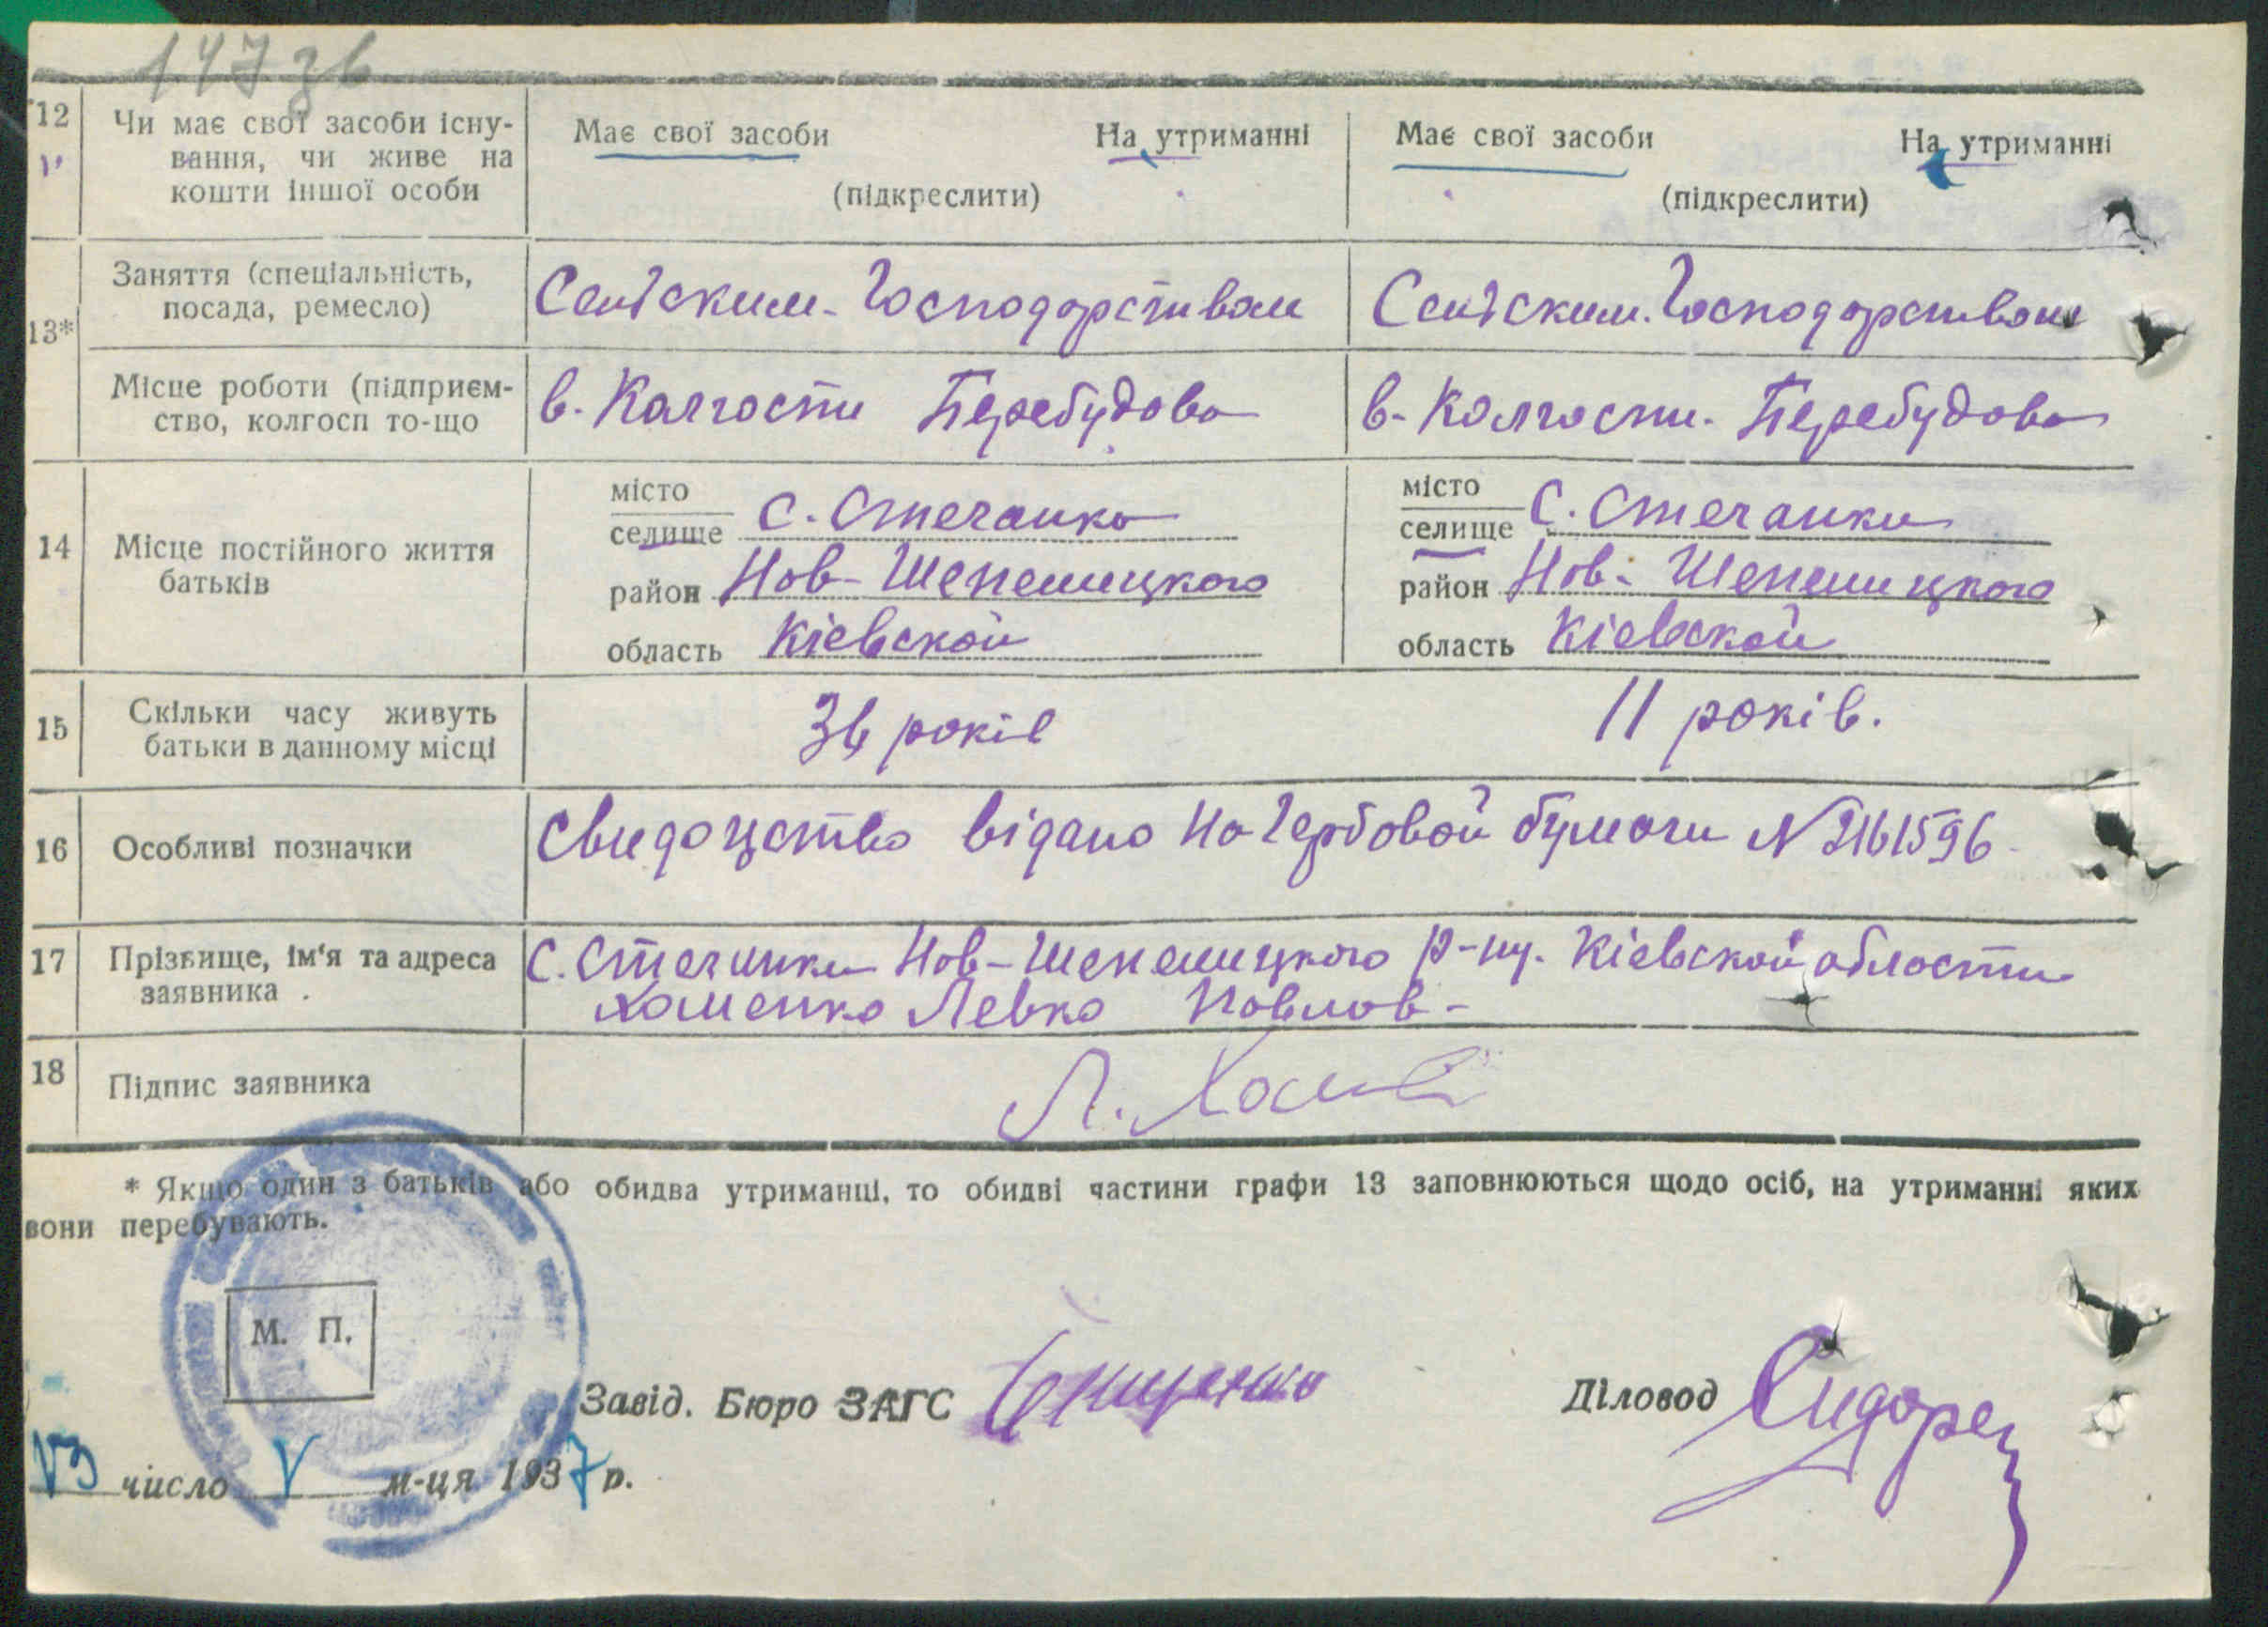 147 зв
12 Чи має свої засоби існу-
вання, чи живе на
кошти іншої особи
Має свої засоби На утриманні
(підкреслити)
Має свої засоби На утриманні
(підкреслити)
13*
Заняття (спеціальність,
посада, ремесло)
Сельским. Господарством
Сельским. Господарством
Місце роботи (підприєм-
ство, колгосп то-що
в. Колгоспи Перебудова
в. Колгоспи. Перебудова
14 Місце постійного життя
батьків
місто
селище С. Стечанка
район Нов-Шепелицкого
область Кіевской
місто
селище С. Стечанки
район Нов. Шепелицкого
область Кіевской
15 Скільки часу живуть
батьки в данному місці
36 років
11 років.
16 Особливі позначки
Свидоцство відано на Гербовой бумаги № 2161596
17 Прізвище, ім'я та адреса
заявника .
С. Стечинки Нов-Шепелицкого р-ну. Кіевской області
Хоменко Левко Повлов-
18 Підпис заявника
Л. Хоме
* Якщо один з батьків або обидва утриманці, то обидві частини графи 13 заповнюються щодо осіб, на утриманні яких
вони перебувають.
М. П.
Завід. Бюро ЗАГС
Діловод Сидорен
13 число V м-ця 1937 р.